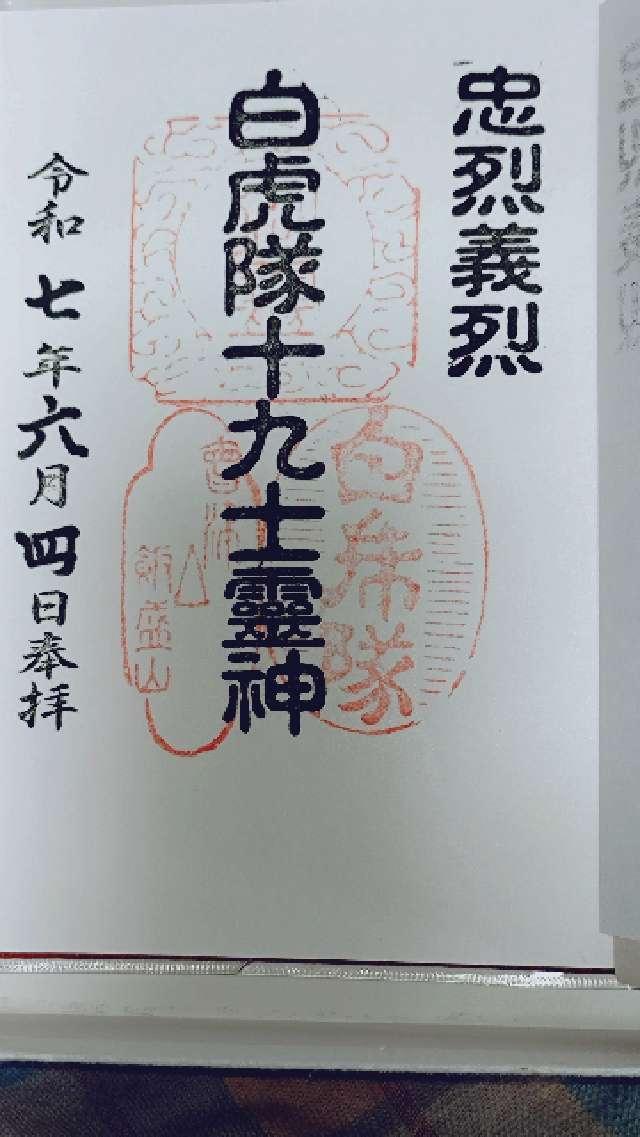 忠烈義烈
白虎隊十九士靈神
白虎隊
會津
飯盛山
令和七年六月四日奉拝